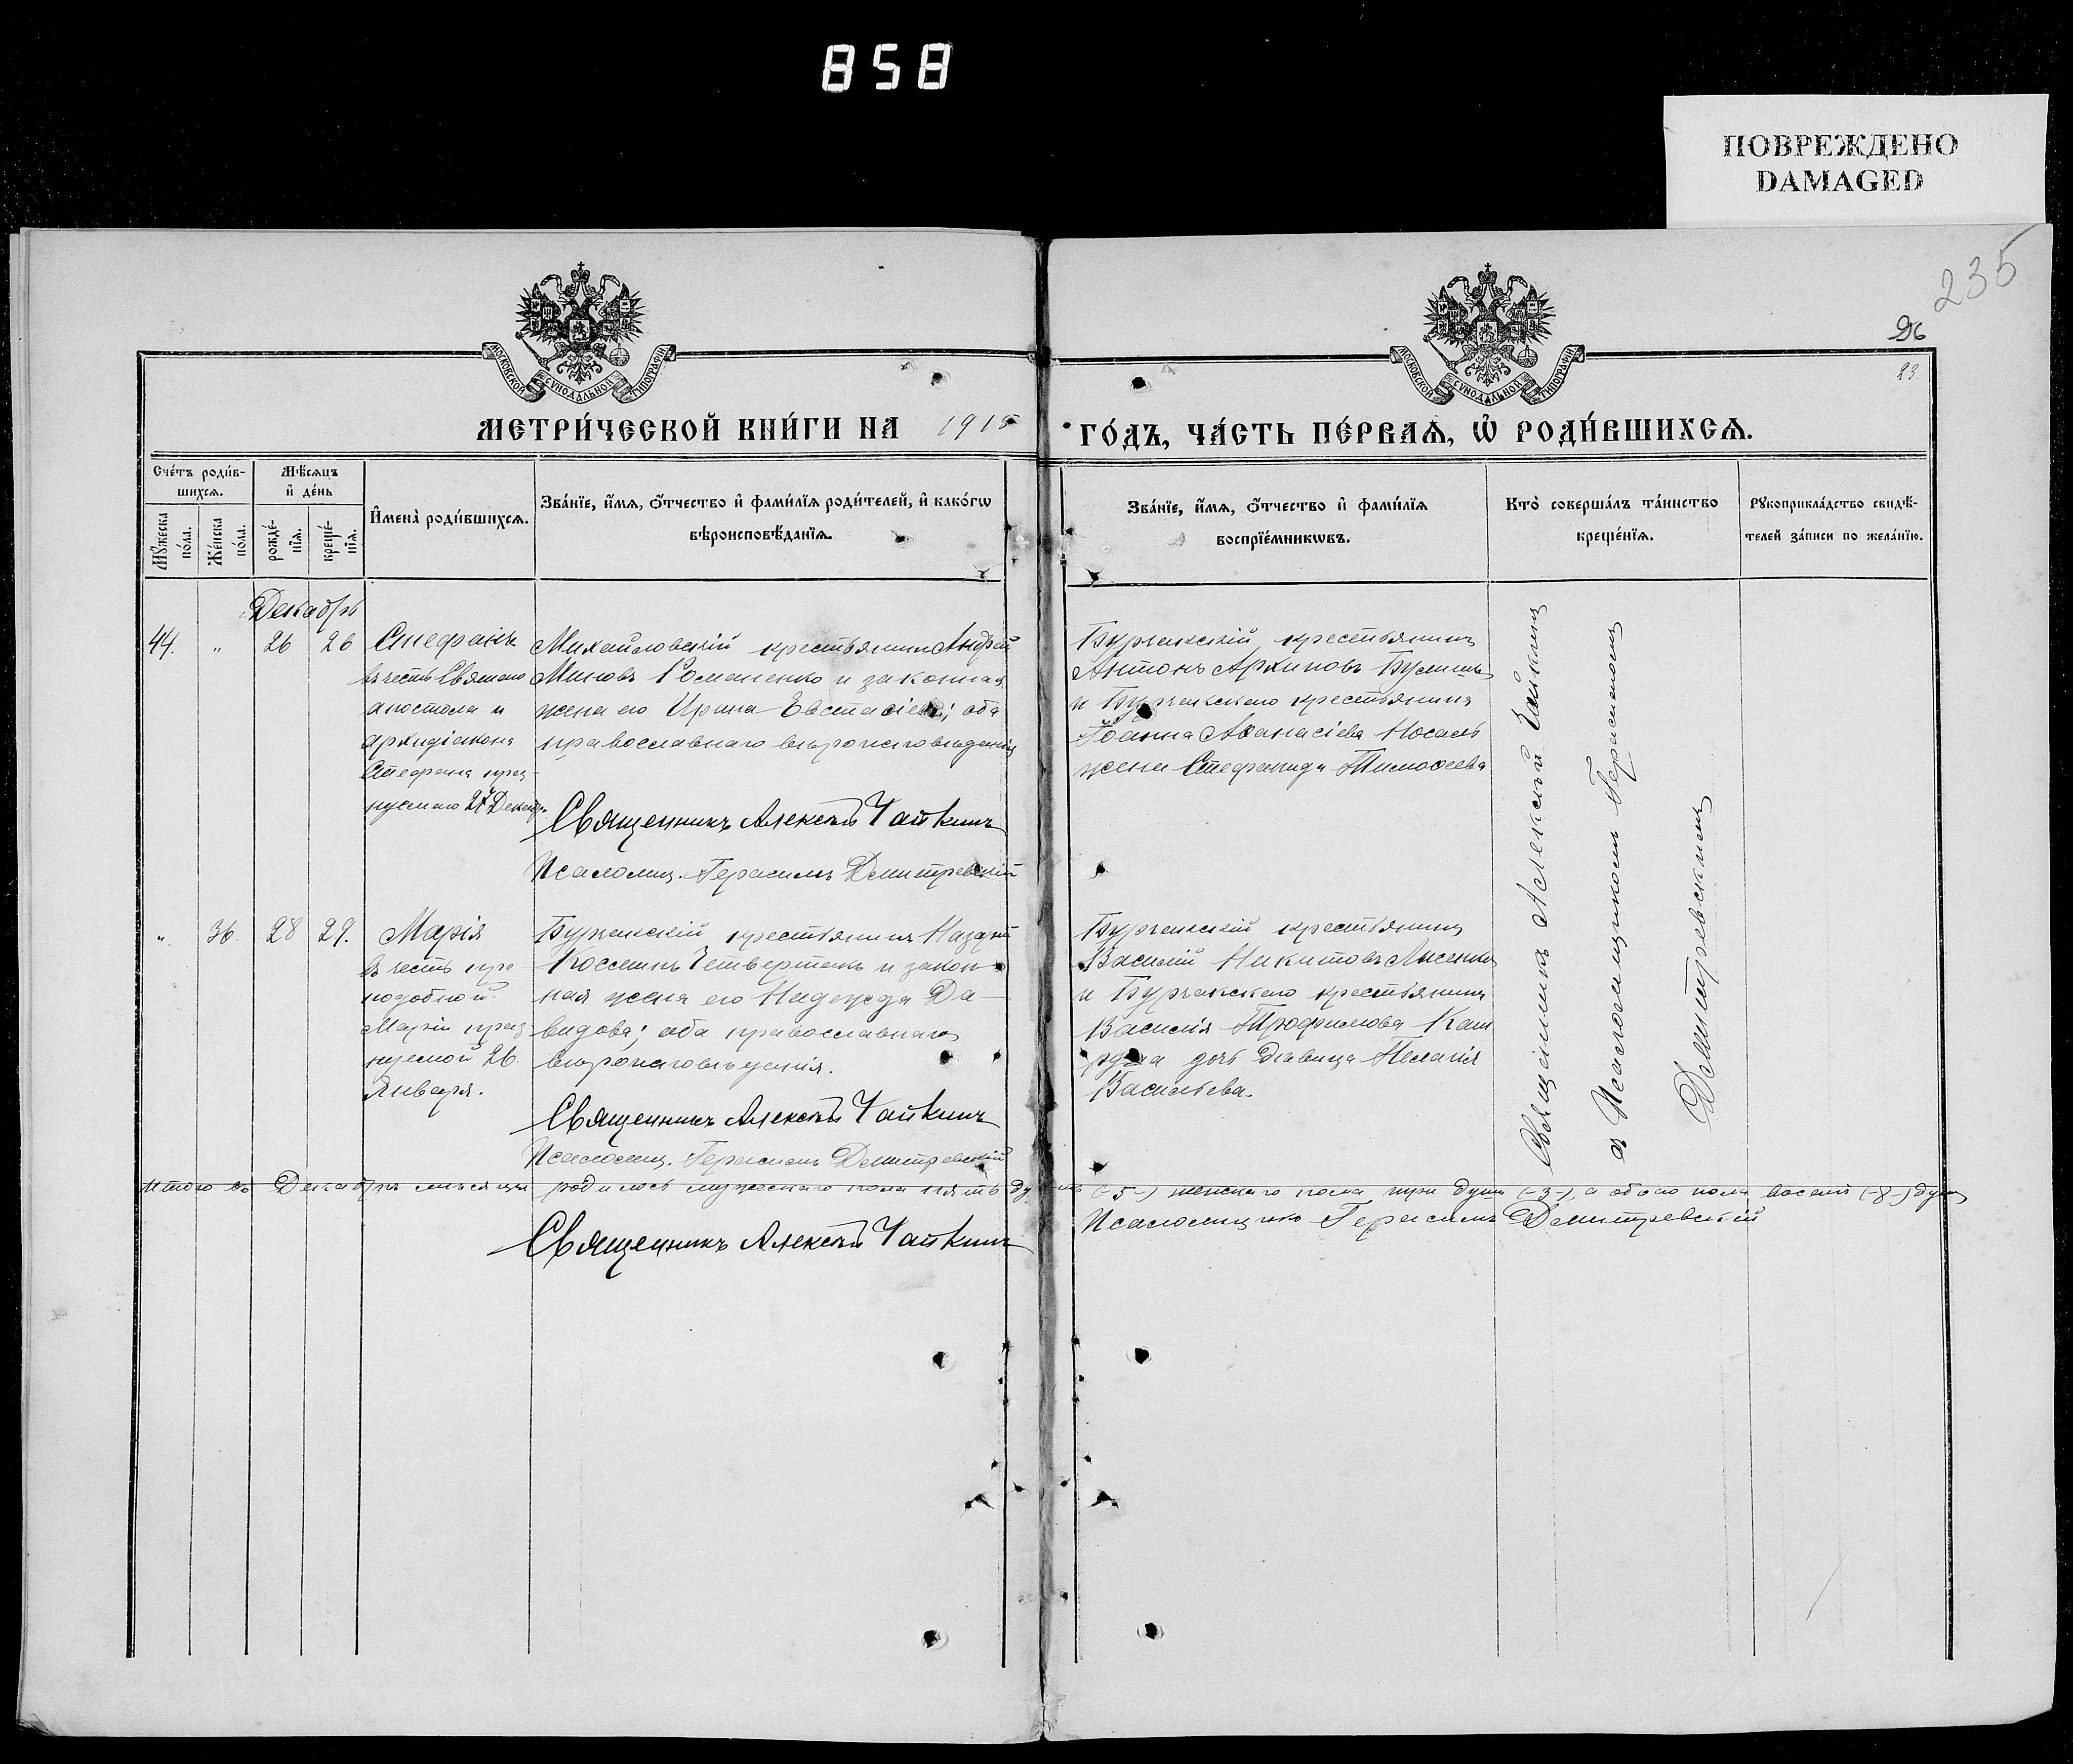 858
ПОВРЕЖДЕНО
DAMAGED
235
26
23.
МОСКОВСКОЙ СѴНОДАЛЬНОЙ ТИПОГРАФІИ
МОСКОВСКОЙ СѴНОДАЛЬНОЙ ТИПОГРАФІИ
МЕТРИ́ЧЕСКОЙ КНИ́ГИ НА 1915 ГО́ДЪ, ЧА́СТЬ ПЕ́РВАѦ, Ѡ҆ РОДИ́ВШИХСѦ.
Сче́тъ роди́в-
шихсѧ.
Мꙋжеска
по́ла.
Же́нска
по́ла.
Мѣ́сѧцъ
и҆ де́нь
рожде́-
нїѧ.
креще́-
нїѧ.
И҆мена̀ роди́вшихсѧ.
Зва́нїе, и҆́мѧ, ѻ҆́тчество и҆ фами́лїѧ роди́телей, и҆ како́гѡ
вѣроисповѣ́данїѧ.
Зва́нїе, и҆́мѧ, ѻ҆́тчество и҆ фами́лїѧ
воспрїе́мникѡвъ.
Кто̀ соверша́лъ та́инство
креще́нїѧ.
Рꙋкоприкла́дство свидѣ́-
телей за́писи по жела́нїю.
Декабрь
44. „ 26 26
Стефанъ
въ честь Святаго
апостола и
архидіакона
Стефана праз-
нуемаго 27 Декабря
Михайловскій крестьянинъ Андрей
Миновъ Романенко и законная
жена его Ирина Евстасіева; оба
православнаго вѣроисповѣданія
Священникъ Алексѣй Чайкинъ
Псаломщ. Герасимъ Дмитревскій
Бурчакскій крестьянинъ
Антонъ Архиповъ
и Бурчакскаго крестьянина
Іоанна Аѳанасіева Носаль
жена Стефанида Тимоѳеева
„ 36. 28 29.
Марія
въ честь пре
подобной
Маріи праз
нуемой 26
Января.
Бурчакскій крестьянинъ Назарій
Космин Четвертакъ и закон
ная жена его Надежда Да-
видова; оба православнаго
вѣроисповѣданія.
Священникъ Алексѣй Чайкинъ
Псаломщ. Герасимъ Дмитревскій
Бурчакскій крестьянинъ
Василій Никитовъ Лисенко
и Бурчакскаго крестьянина
Василія Трофимова Каш
дочь дѣвица Пелагія
Васильева.
Священникъ Алексѣй Чайкинъ
съ Псаломщикомъ Герасимомъ
Дмитревскимъ
Итого въ Декабрѣ мѣсяцѣ родилось мужескаго пола пять душъ (-5-) женскаго пола три души (-3-), а обоего пола восемь (-8-) душъ
Священникъ Алексѣй Чайкинъ
Псаломщикъ Герасимъ Дмитревскій